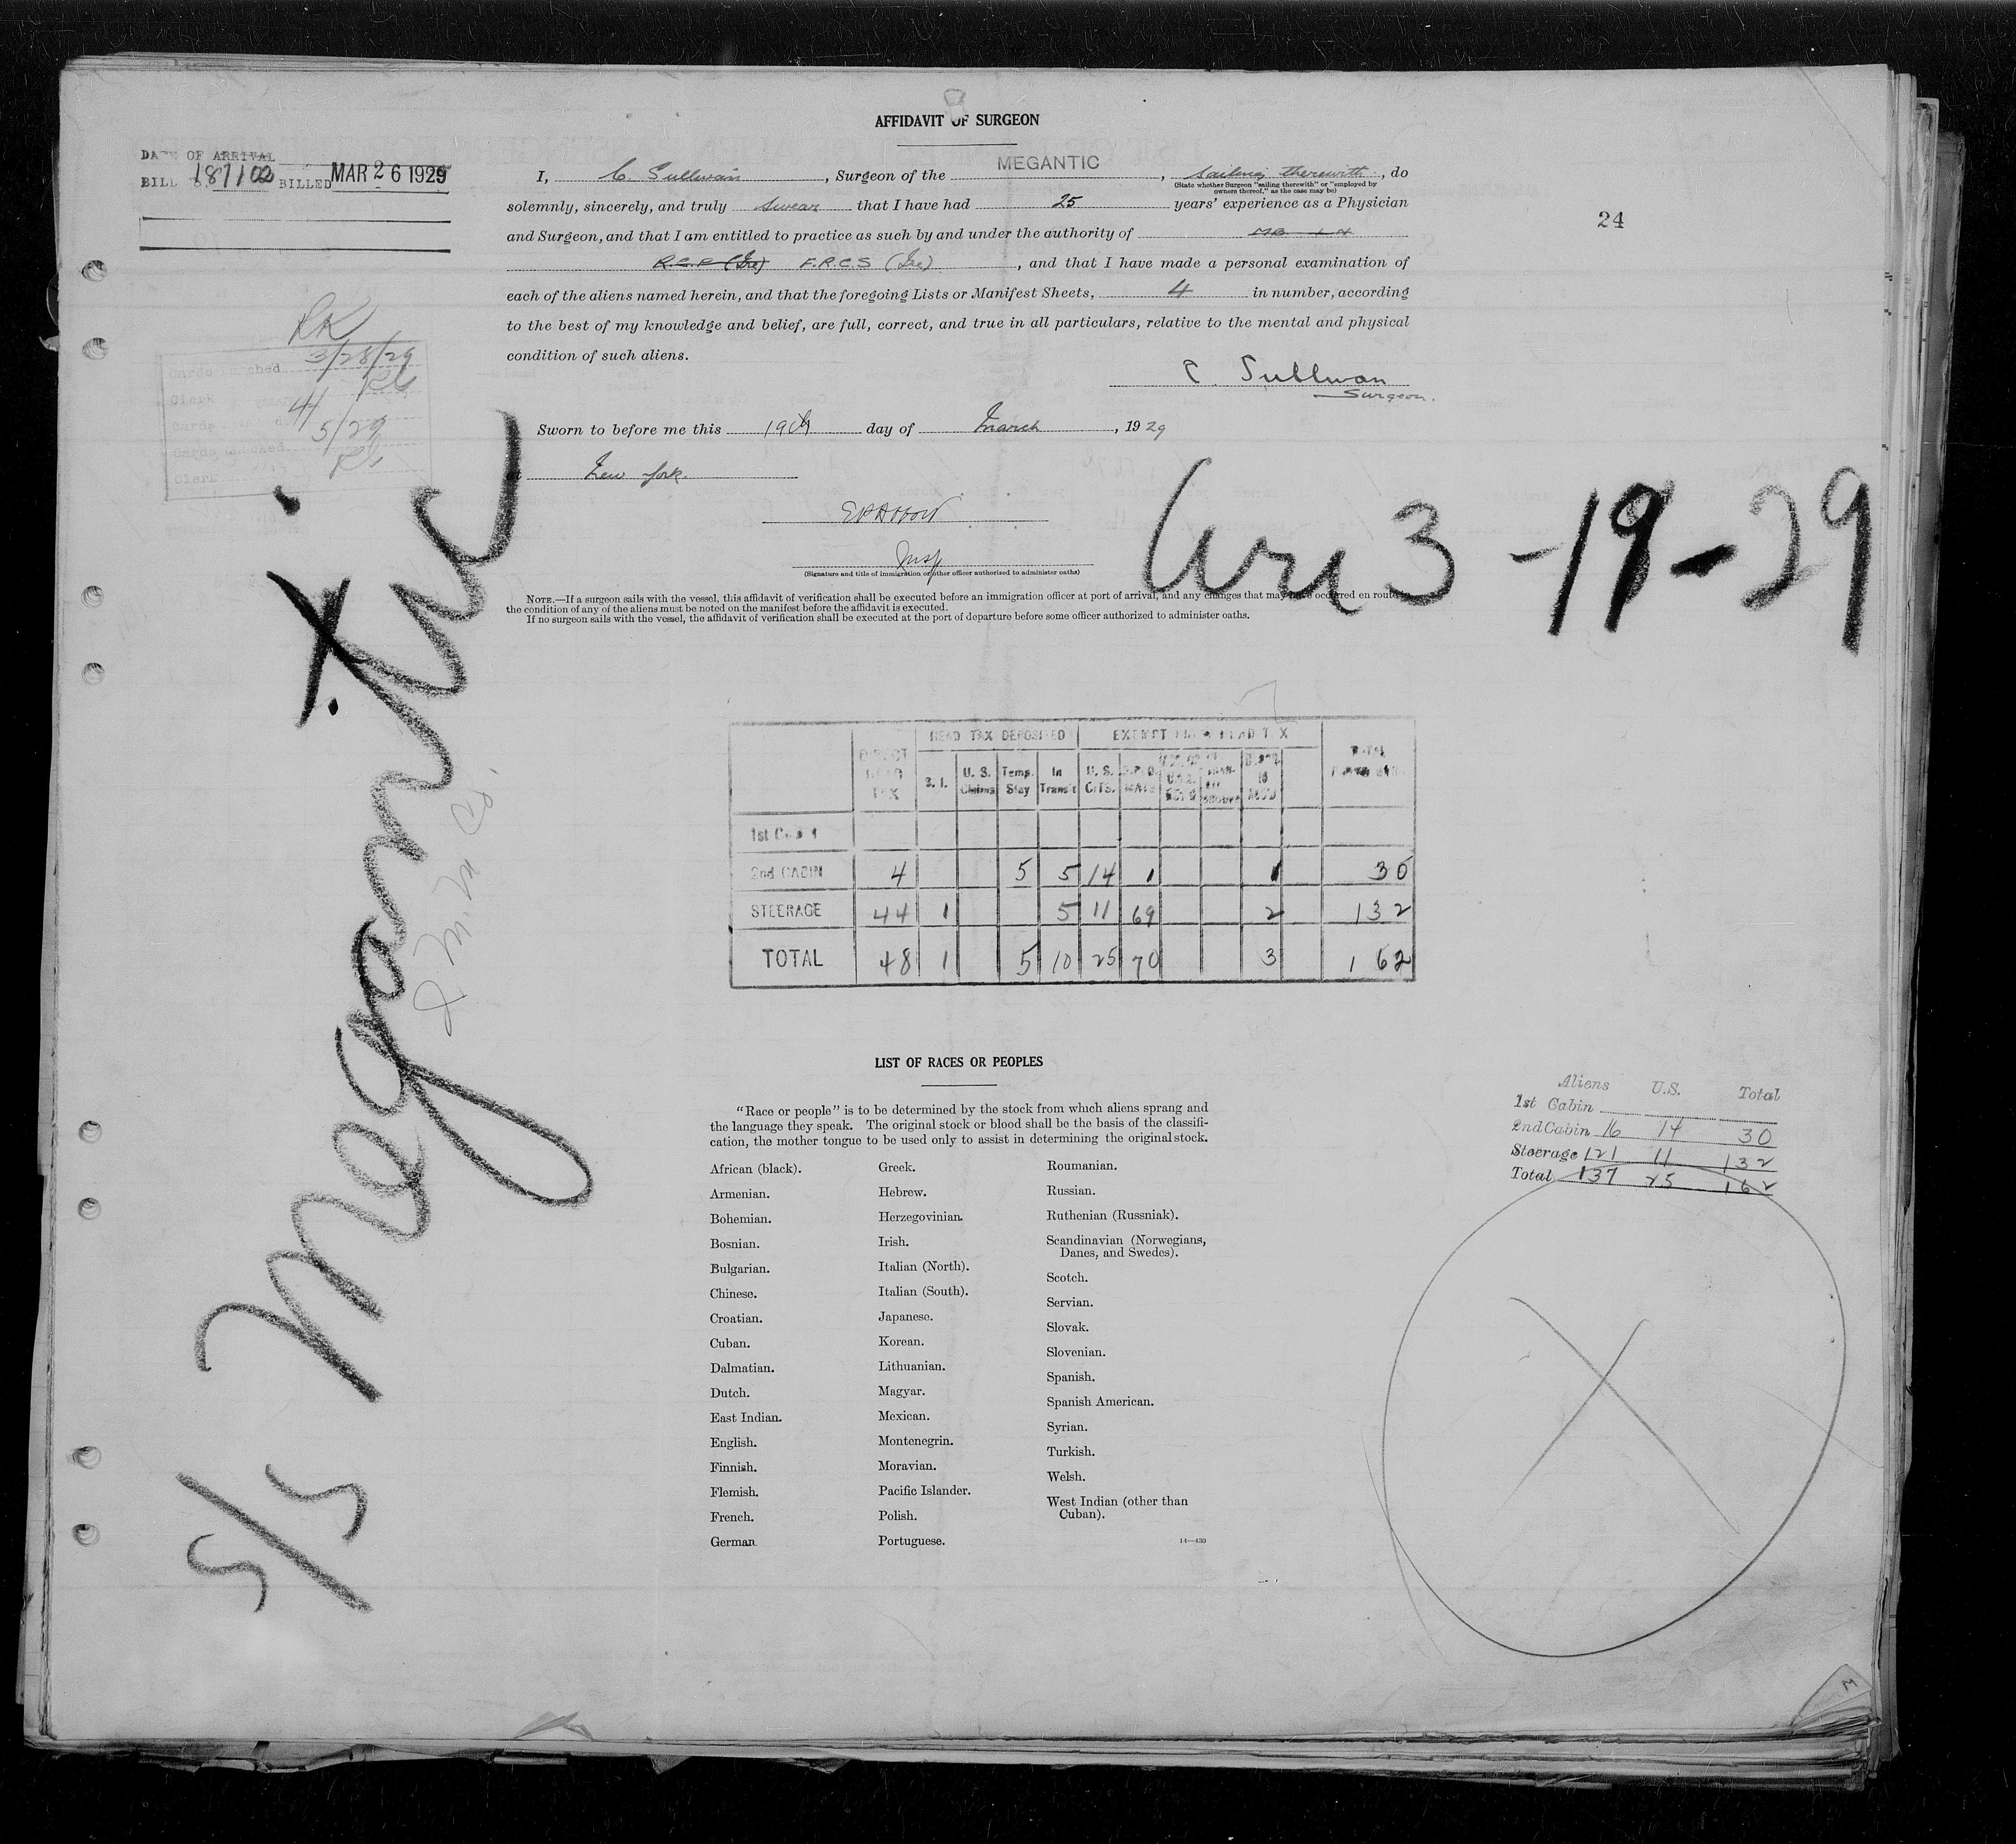 AFFIDAVIT OF SURGEON
DATE OF ARRIVAL
BILL 187102 BILLED MAR 26 1929
I, C. Sullivan, Surgeon of the MEGANTIC, sailing therewith, do
(State whether Surgeon "sailing therewith" or "employed by
owners thereof," as the case may be)
solemnly, sincerely, and truly swear that I have had 25 years' experience as a Physician
24
and Surgeon, and that I am entitled to practice as such by and under the authority of
R.C.P. (Ire) F.R.C.S (Ire), and that I have made a personal examination of
each of the aliens named herein, and that the foregoing Lists or Manifest Sheets, 4 in number, according
to the best of my knowledge and belief, are full, correct, and true in all particulars, relative to the mental and physical
condition of such aliens.
RK
3/28/29
Clerk
4/
5/29
Clerk
C. Sullivan
Surgeon.
Sworn to before me this 19th day of March, 1929
New York.
Insp
(Signature and title of immigration or other officer authorized to administer oaths)
Arr 3-19-29
NOTE.—If a surgeon sails with the vessel, this affidavit of verification shall be executed before an immigration officer at port of arrival, and any changes that may have occurred en route
the condition of any of the aliens must be noted on the manifest before the affidavit is executed.
If no surgeon sails with the vessel, the affidavit of verification shall be executed at the port of departure before some officer authorized to administer oaths.
S/S Megantic
HEAD TAX DEPOSITED EXEMPT FROM HEAD TAX
DIRECT HEAD TAX S. I. U. S. Claims Temp. Stay In Transit U. S. CITS. TOTAL
1st Cabin
2nd CABIN 4 5 5 14 1 1 30
STEERAGE 44 1 5 11 69 2 132
TOTAL 48 1 5 10 25 70 3 162
LIST OF RACES OR PEOPLES
"Race or people" is to be determined by the stock from which aliens sprang and
the language they speak. The original stock or blood shall be the basis of the classifi-
cation, the mother tongue to be used only to assist in determining the original stock.
Aliens U.S. Total
1st Cabin
2nd Cabin 16 14 30
Steerage 121 11 132
Total 137 25 162
African (black).
Armenian.
Bohemian.
Bosnian.
Bulgarian.
Chinese.
Croatian.
Cuban.
Dalmatian.
Dutch.
East Indian.
English.
Finnish.
Flemish.
French.
German
Greek.
Hebrew.
Herzegovinian.
Irish.
Italian (North).
Italian (South).
Japanese.
Korean.
Lithuanian.
Magyar.
Mexican.
Montenegrin.
Moravian.
Pacific Islander.
Polish.
Portuguese.
Roumanian.
Russian.
Ruthenian (Russniak).
Scandinavian (Norwegians,
Danes, and Swedes).
Scotch.
Servian.
Slovak.
Slovenian.
Spanish.
Spanish American.
Syrian.
Turkish.
Welsh.
West Indian (other than
Cuban).
14—430